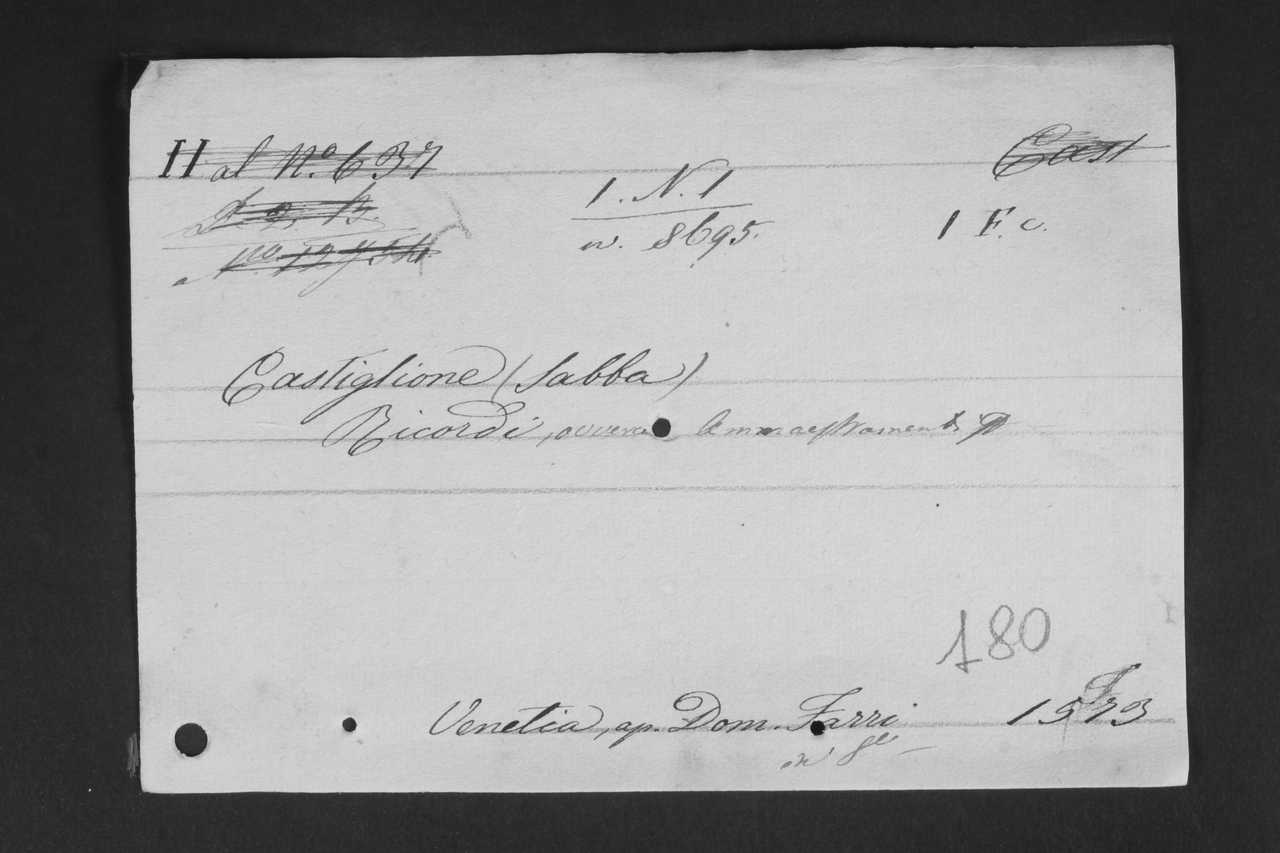 H al N.º 637
Cast
1. N. 1
n. 8695.
1 F. c.
Castiglione (Sabba)
Ricordi, ovvero Ammaestramenti
180
Venetia, ap. Dom. Farri 1573
in 8º